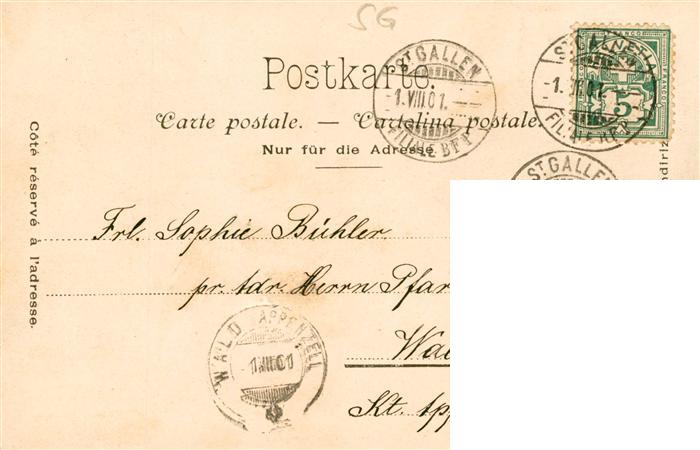 SG
Postkarte.
Carte postale. — Cartolina postale.
Nur für die Adresse
Côté réservé à l'adresse.
ST. GALLEN
1.VIII.01.
ST. GALLEN
FRANCO
5
ST. GALLEN
Frl. Sophie Bühler
pr. adr. Herrn Pfar
Wal
Kt. App
WALD APPENZELL
1.VIII.01